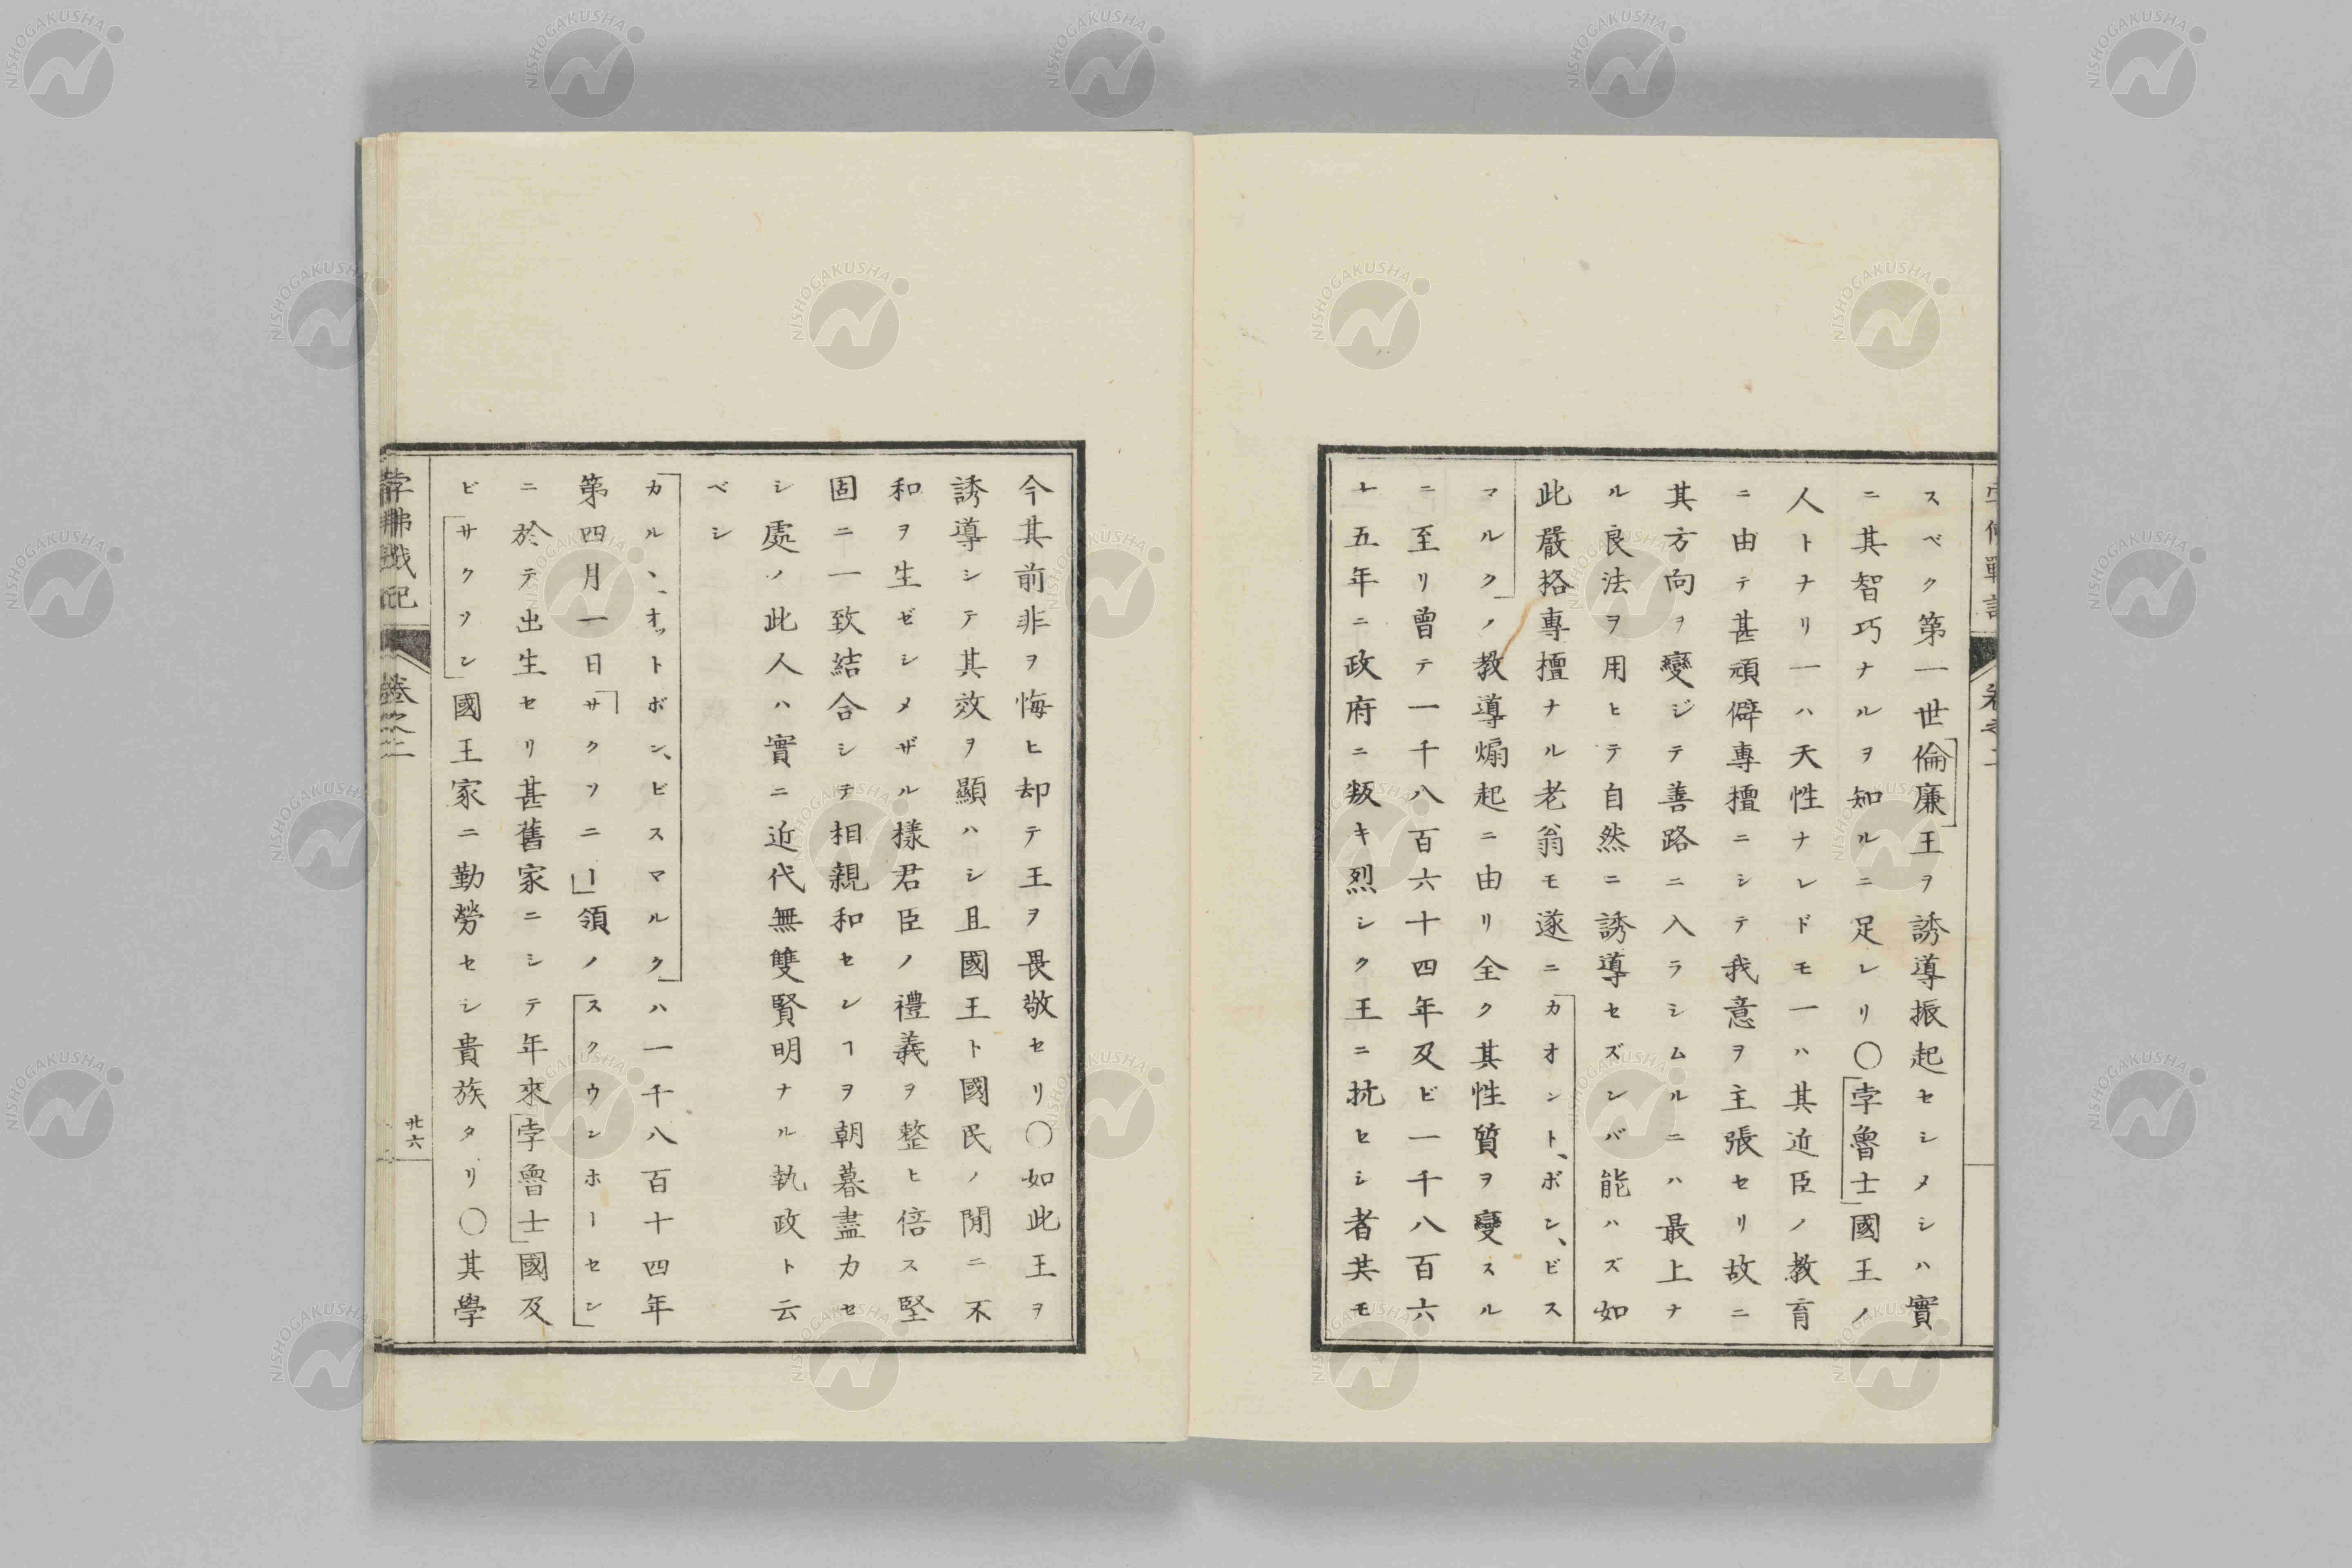 スベク第一世倫廉王ヲ誘導振起セシメシハ實
ニ其智巧ナルヲ知ルニ足レリ〇孛魯士國王ノ
人トナリ一ハ天性ナレドモ一ハ其近臣ノ教育
ニ由テ甚頑僻專擅ニシテ我意ヲ主張セリ故ニ
其方向ヲ變ジテ善路ニ入ラシムルニハ最上ナ
ル良法ヲ用ヒテ自然ニ誘導セズンバ能ハズ如
此嚴格專擅ナル老翁モ遂ニ「カオント、ボン、ビス
マルク」ノ教導煽起ニ由リ全ク其性質ヲ變スル
ニ至リ曾テ一千八百六十四年及ビ一千八百六
十五年ニ政府ニ叛キ烈シク王ニ抗セシ者其モ
今其前非ヲ悔ヒ却テ王ヲ畏敬セリ〇如此王ヲ
誘導シテ其效ヲ顯ハシ且國王ト國民ノ間ニ不
和ヲ生ゼシメザル樣君臣ノ禮義ヲ整ヒ倍ス堅
固ニ一致結合シテ相親和セシヿヲ朝暮盡力セ
シ處ノ此人ハ實ニ近代無雙賢明ナル執政ト云
ベシ
「カル、、オットボン、ビスマルク」ハ一千八百十四年
第四月一日「サクソニー」領ノ「スクウンホーセン」
ニ於テ出生セリ甚舊家ニシテ年來孛魯士國及
ビ「サクソン」國王家ニ勤勞セシ貴族タリ〇其學
孛佛戰記
卷之二
廿六
NISHOGAKUSHA